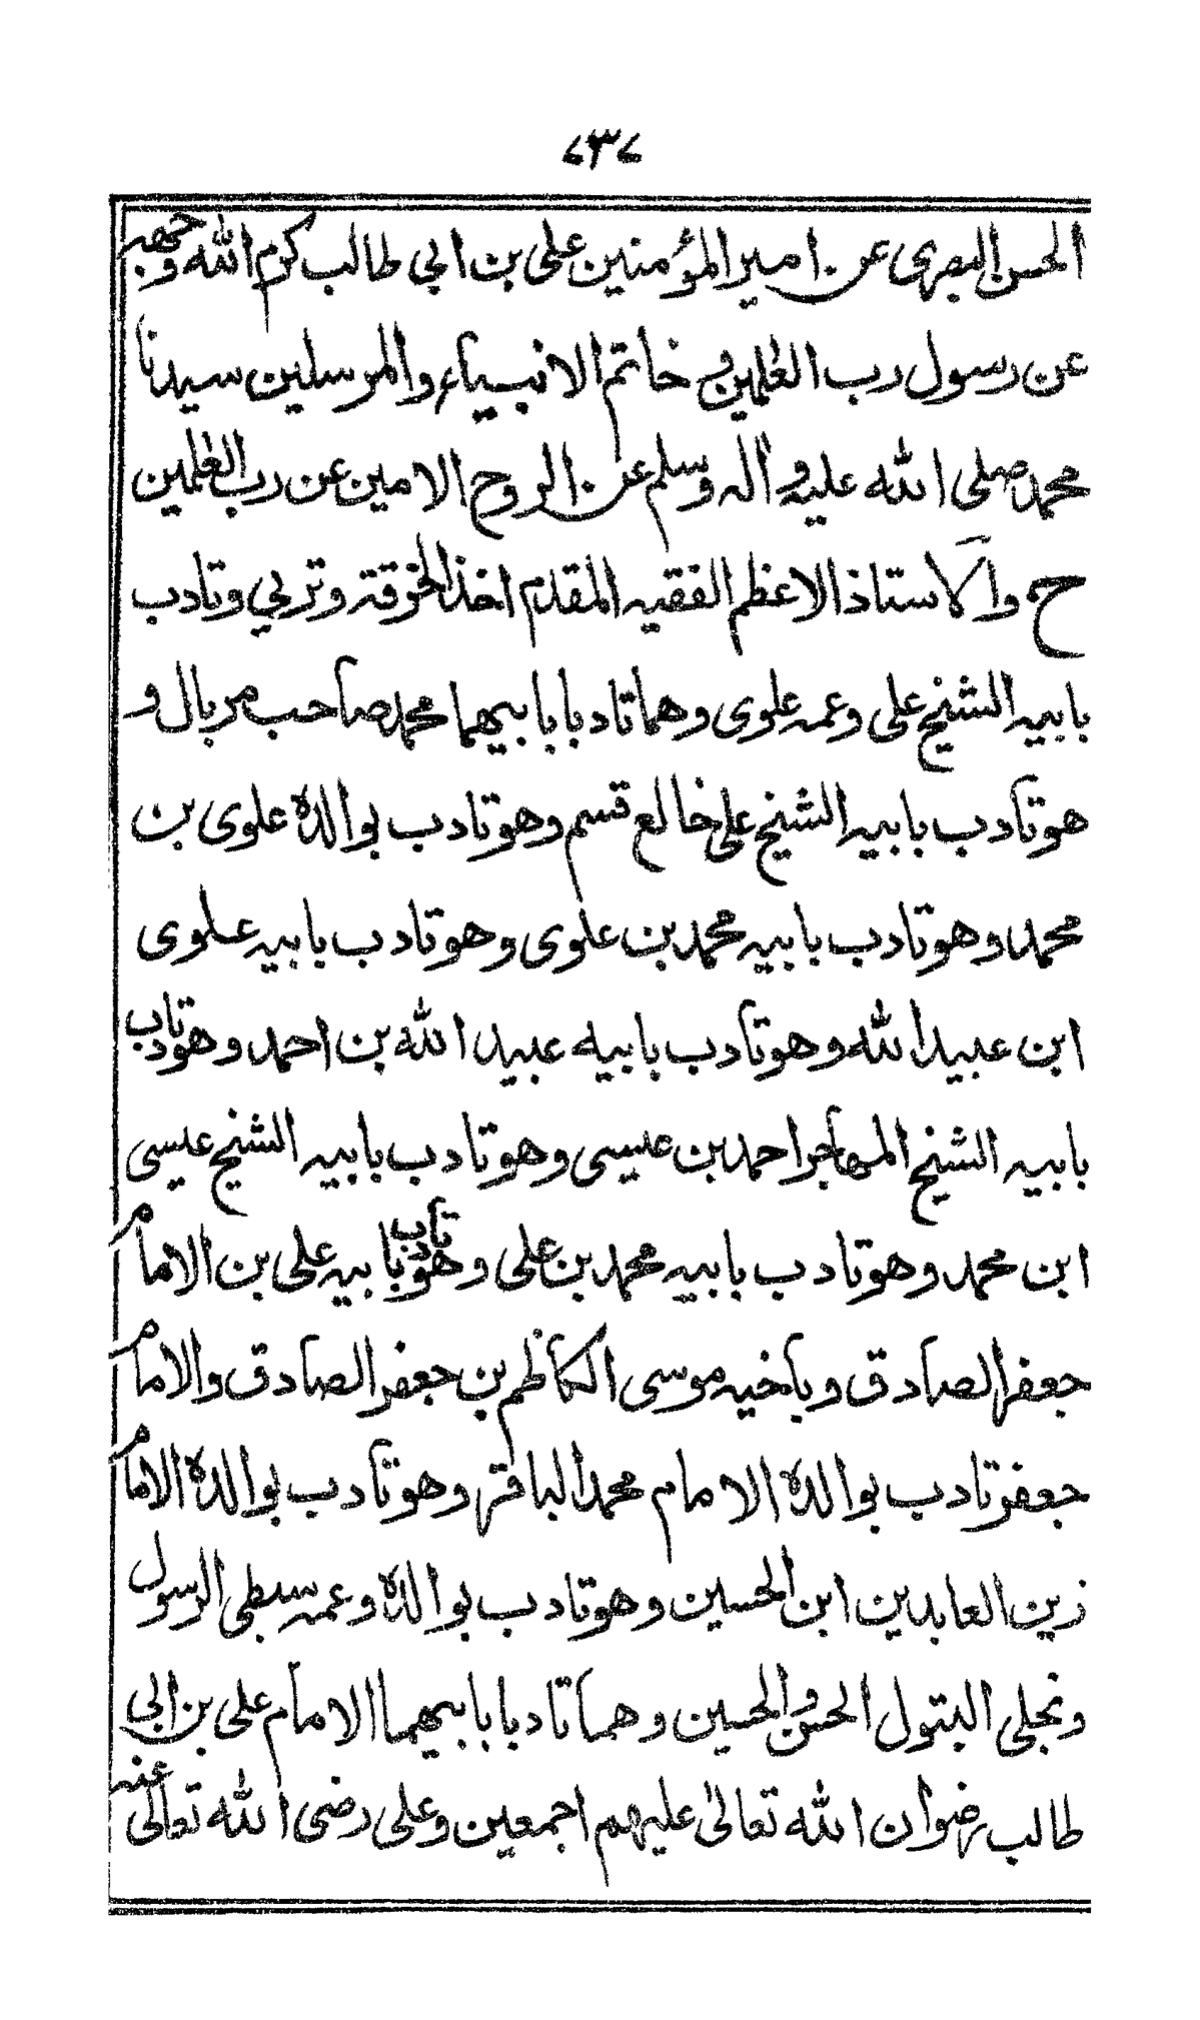 ٢٣٤
الحسن البصرى عن امير المؤمنين على بن ابي طالب كرم الله وجهه
عن رسول رب العٰلمين و خاتم الانبياء والمرسلين سيدنا
محمد صلى الله عليه و اٰله وسلم عن الروح الامين عن رب العٰلمين
ح والاستاذ الاعظم الفقيه المقدم اخذ الخرقة وتربي وتادب
بابيه الشيخ على وعمه علوى وهما تادبا بابيهما محمد صاحب مربال و
هو تادب بابيه الشيخ على خالع قسم وهو تادب بوالده علوى بن
محمد وهو تادب بابيه محمد بن علوى وهو تادب بابيه علوى
ابن عبيد الله وهو تادب بابيه عبيد الله بن احمد وهو تادب
بابيه الشيخ المهاجر احمد بن عيسى وهو تادب بابيه الشيخ عيسى
ابن محمد وهو تادب بابيه محمد بن على وهو تادب بابيه على بن الامام
جعفر الصادق وباخيه موسى الكاظم بن جعفر الصادق والامام
جعفر تادب بوالده الامام محمد الباقر وهو تادب بوالده الامام
زين العابدين ابن الحسين وهو تادب بوالده وعمه سبطى الرسول
ونجلى البتول الحسن والحسين وهما تادبا بابيهما الامام على بن ابي
طالب رضوان الله تعالىٰ عليهم اجمعين وعلى رضى الله تعالى عنه